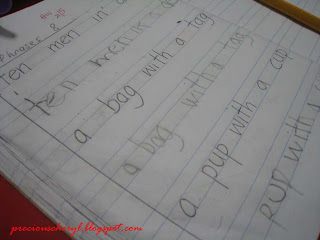 Phrases 8
Ten men in a
ten men in a
a bag with a tag
a bag with a tag
a pup with a cup
pup with a
preciouscheryl.blogspot.com